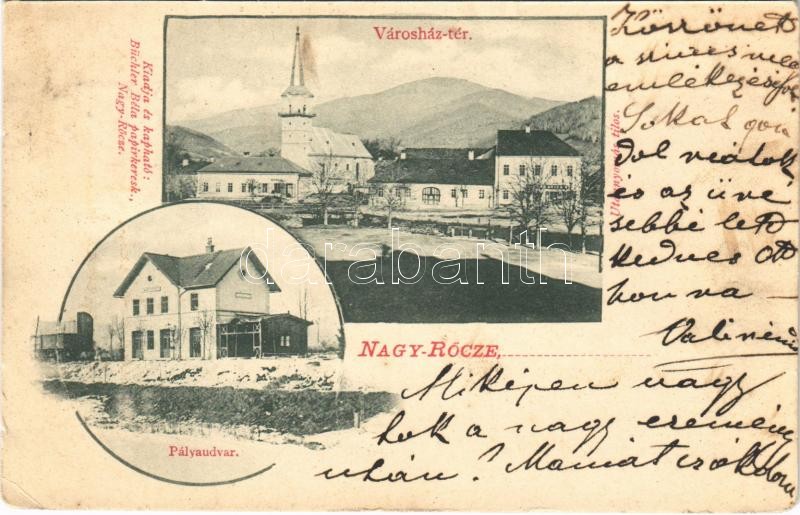 Városház-tér.
Kiadja és kapható:
Büchler Béla papirkeresk.,
Nagy-Rőcze.
Utánnyomás tilos.
darabanth
NAGY-RŐCZE,
Pályaudvar.
Köszönet
a szives meg
emlékezésért
Sokat gon
dol reátok
és az üve
sebbé let
kedves ott
hon va
Miképen vagy
tok a nagy esemény
után? Mamát csókolom